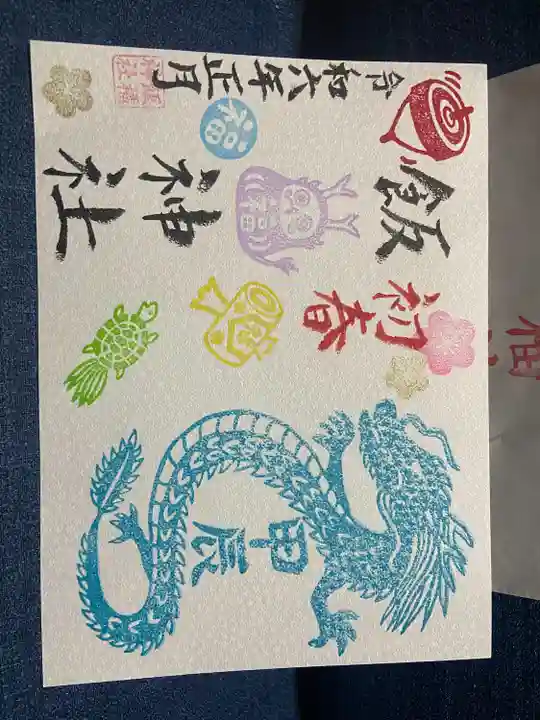 甲辰
初春
飯神社
福
福
令和六年正月